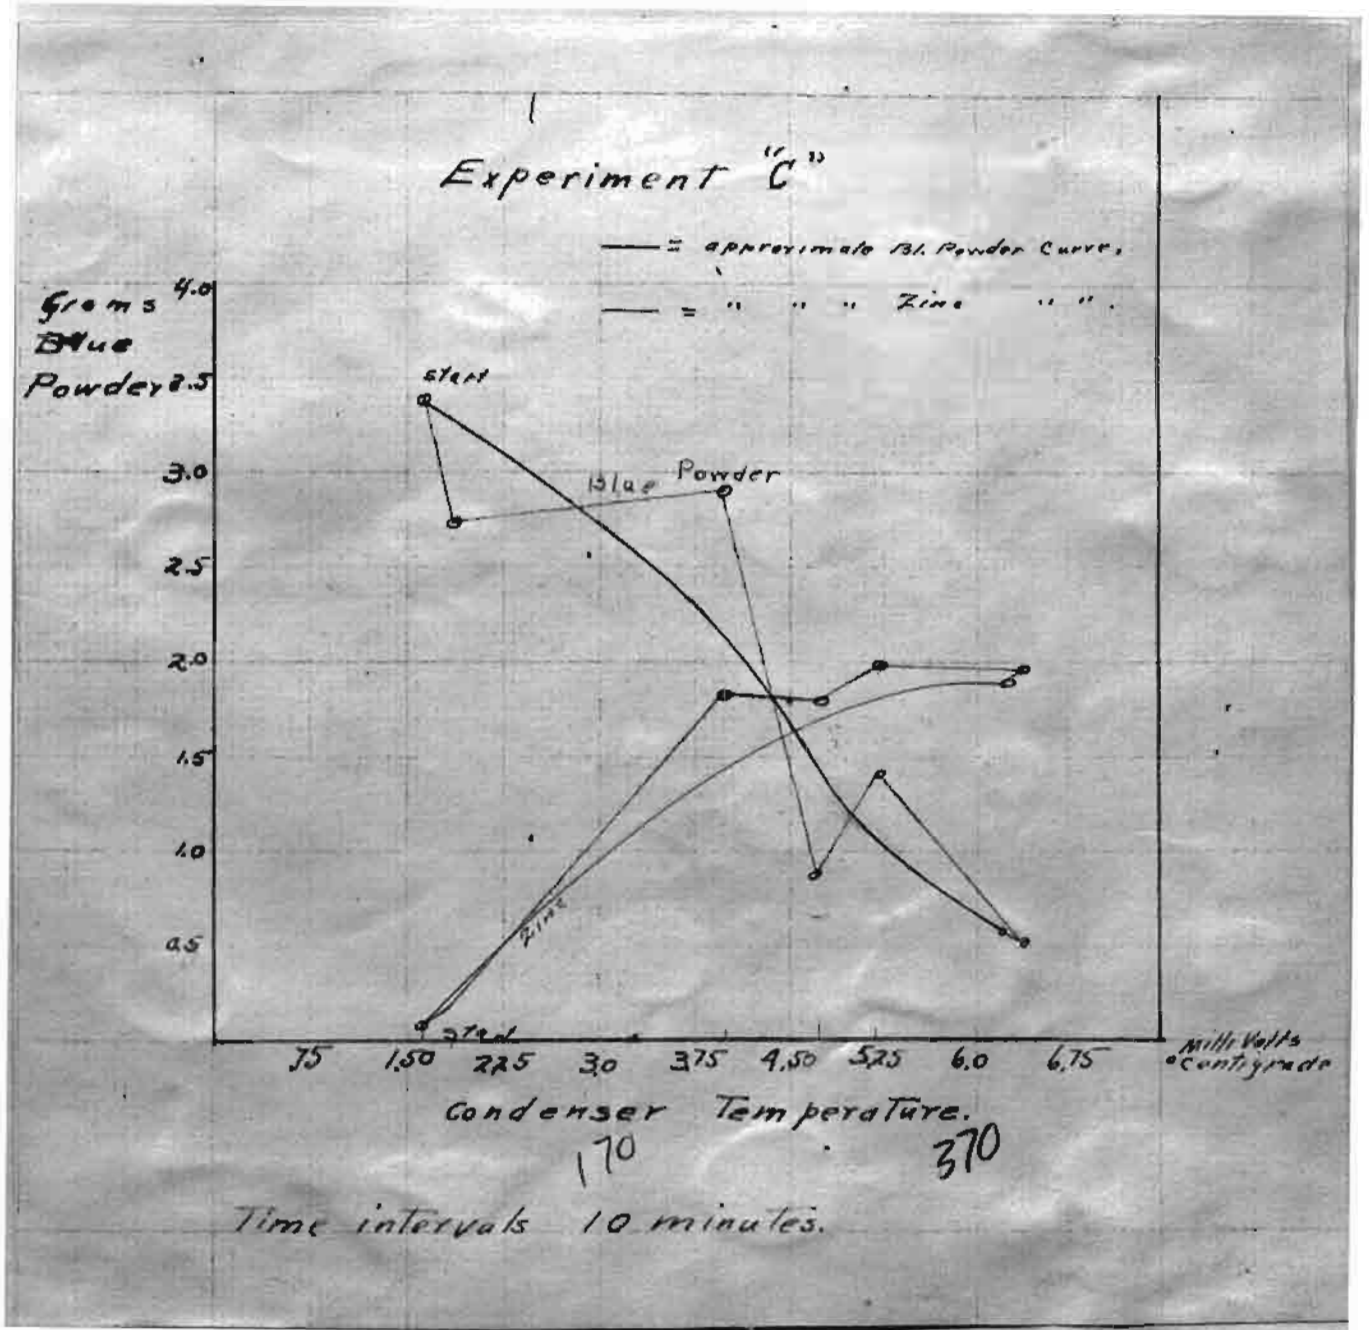 Experiment "C"
= approximate Bl. Powder Curve.
= " " " Zinc " ".
Grams
Blue
Powder
4.0
3.5
3.0
2.5
2.0
1.5
1.0
0.5
start
Blue Powder
Zinc
start
.75 1.50 2.25 3.0 3.75 4.50 5.25 6.0 6.75
Milli Volts
° Centigrade
Condenser Temperature.
170 370
Time intervals 10 minutes.